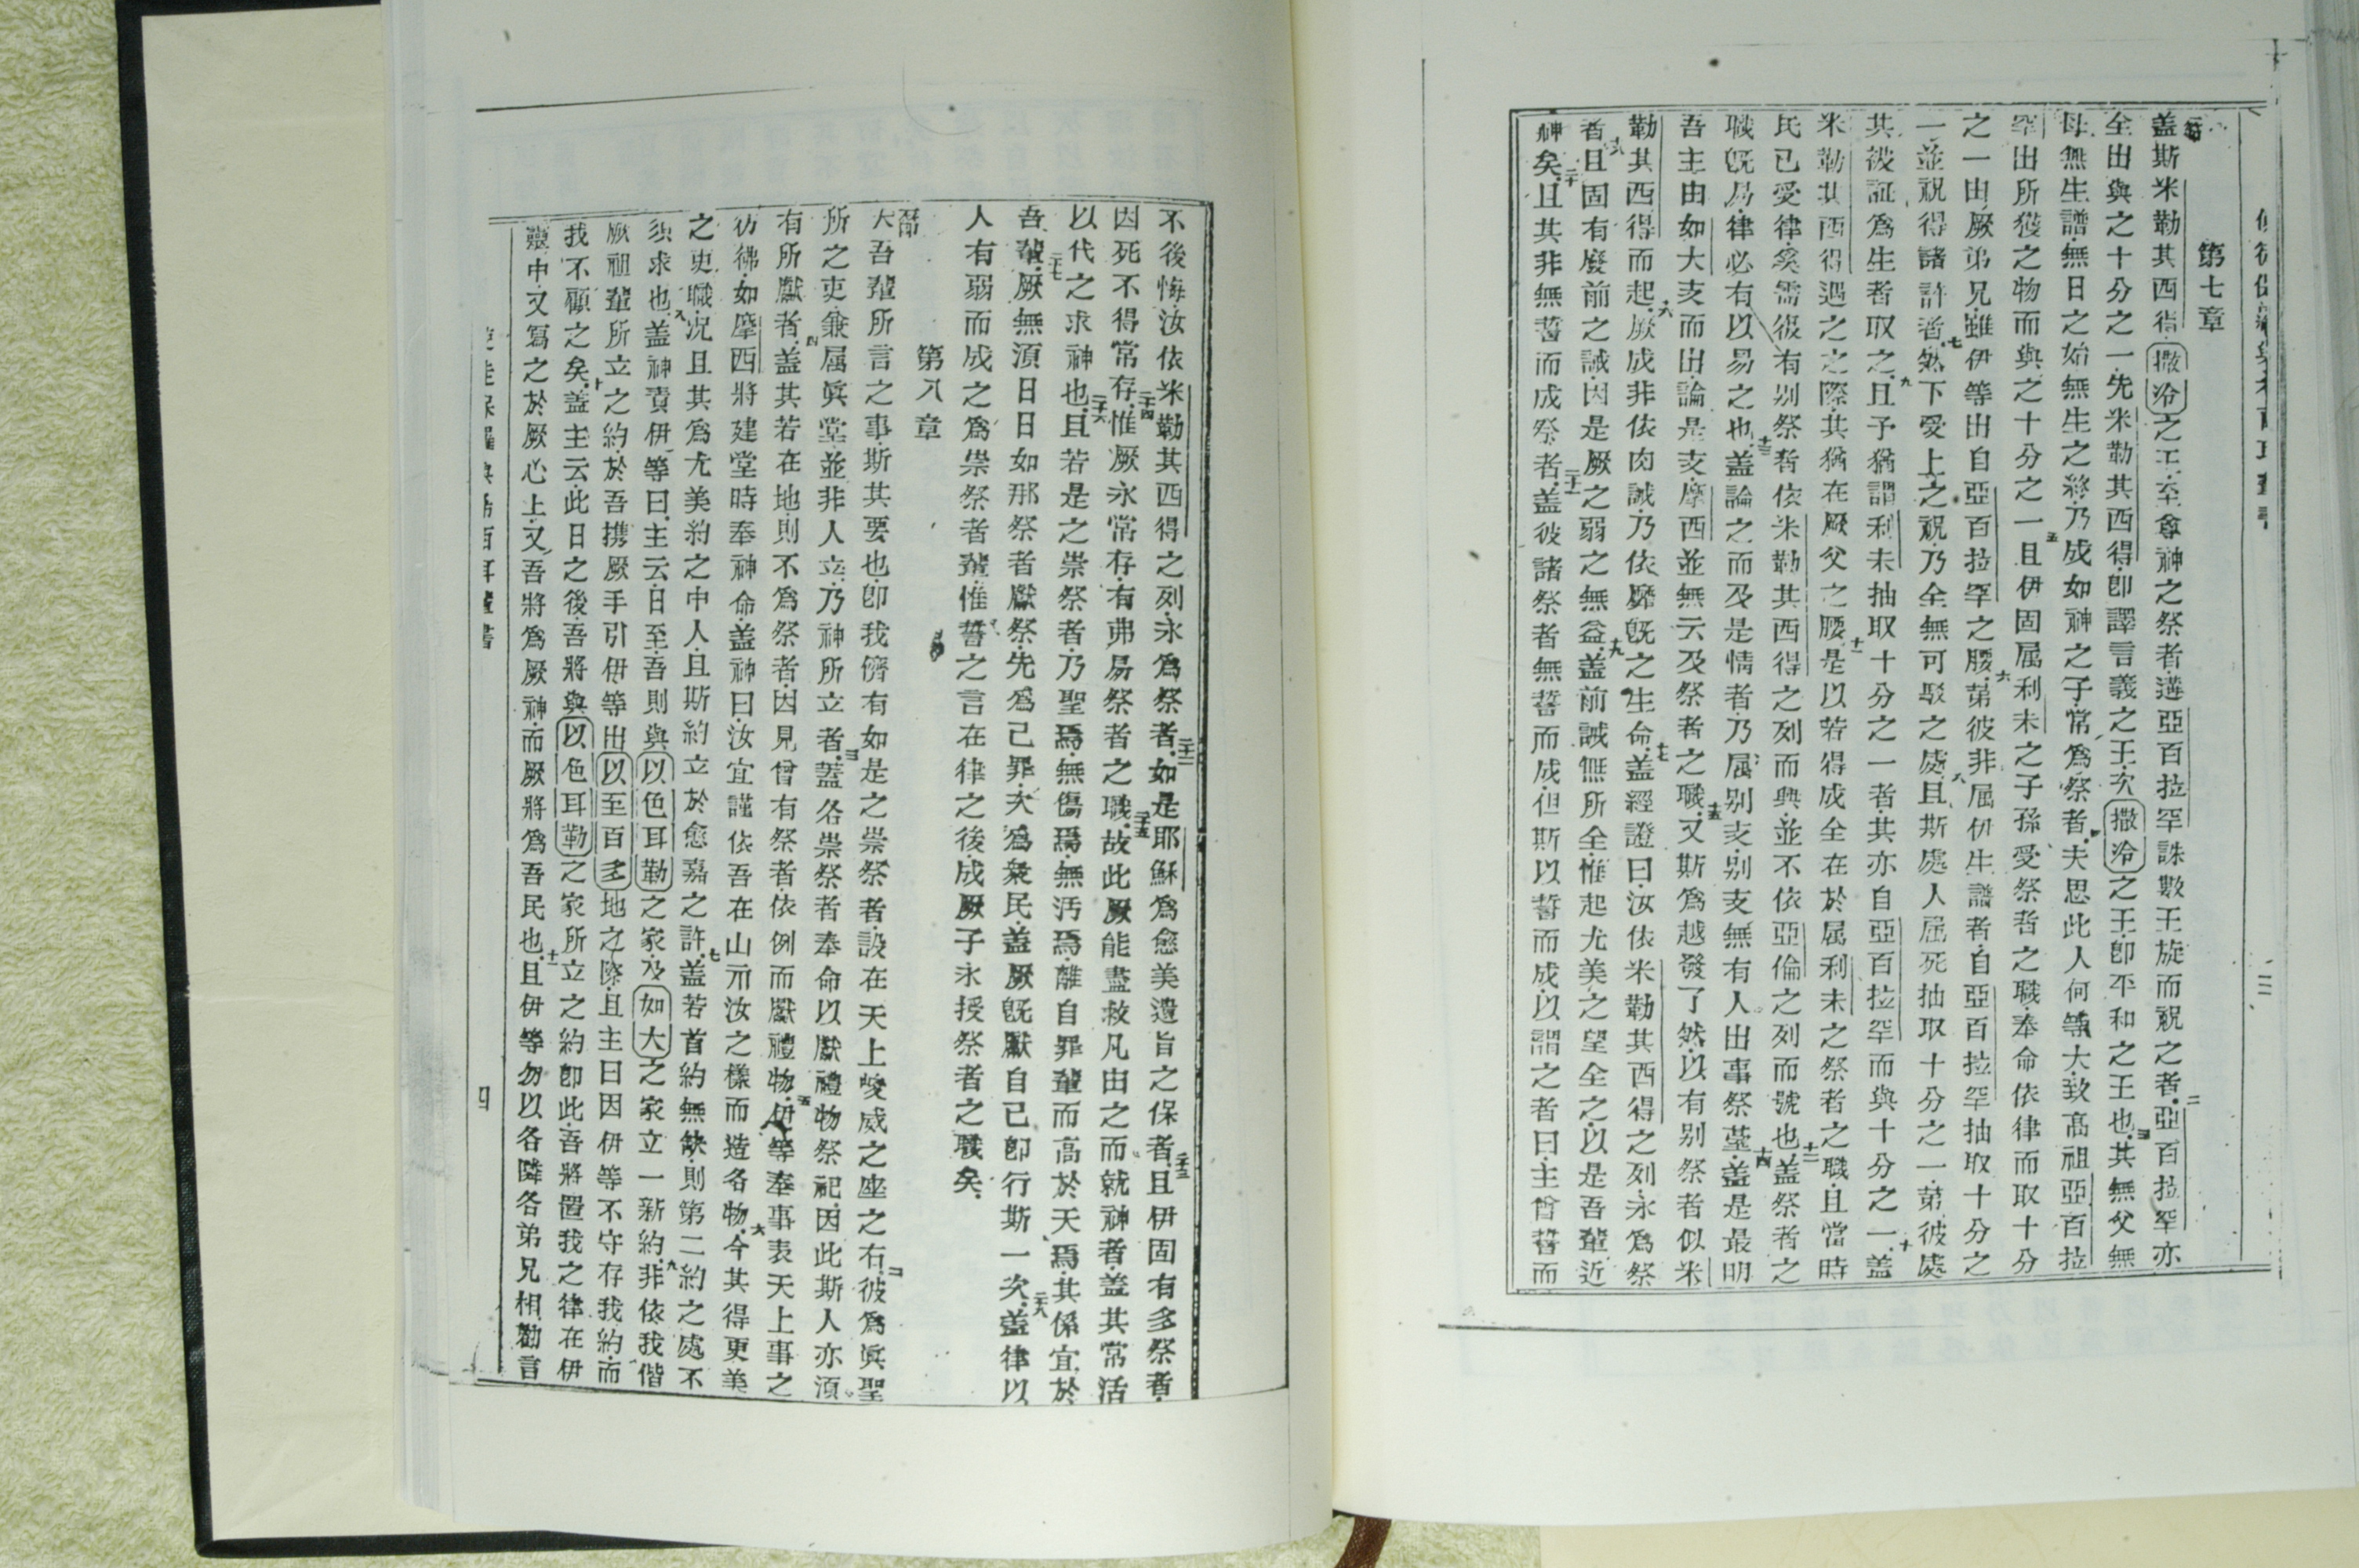 第七章
盖斯米勒其西得撒冷之王至尊神之祭者遘亞百拉罕誅數王旋而祝之者二亞百拉罕亦
全出與之十分之一先米勒其西得卽譯言義之王次撒冷之王卽平和之王也三其無父無
母無生譜無日之始無生之終乃成如神之子常爲祭者四夫思此人何等大致高祖亞百拉
罕出所獲之物而與之十分之一五且伊固屬利未之子孫受祭者之職奉命依律而取十分
之一由厥弟兄雖伊等出自亞百拉罕之腰六第彼非屬伊生譜者自亞百拉罕抽取十分之
一並祝得諸許者七然下愛上之祝乃全無可駁之處八且斯處人屈死抽取十分之一第彼處
其被証爲生者取之九且予猶謂利未抽取十分之一者其亦自亞百拉罕而與十分之一十盖
米勒其西得遇之之際其猶在厥父之腰十一是以若得成全在於屬利未之祭者之職且當時
民已受律奚需彼有别祭者依米勒其西得之列而興並不依亞倫之列而號也十二盖祭者之
職旣易律必有以易之也十三盖論之而及是情者乃屬别支别支無有人出事祭臺十四盖是最明
吾主由如大支而出論是支摩西並無云及祭者之職十五又斯爲越發了然以有别祭者似米
勒其西得而起十六厥成非依肉誡乃依靡旣之生命十七盖經證曰汝依米勒其西得之列永爲祭
者十八且固有廢前之誡因是厥之弱之無益十九盖前誡無所全惟起尤美之望全之以是吾輩近
神矣二十且其非無誓而成祭者二十一盖彼諸祭者無誓而成但斯以誓而成以謂之者曰主曾誓而
不後悔汝依米勒其西得之列永爲祭者二十二如是耶穌爲愈美遺旨之保者二十三且伊固有多祭者
因死不得常存二十四惟厥永常存有弗易祭者之職二十五故此厥能盡救凡由之而就神者盖其常活
以代之求神也二十六且若是之崇祭者乃聖焉無傷焉無汚焉離自罪輩而高於天焉其係宜於
吾輩二十七厥無湏日日如那祭者獻祭先爲己罪次爲衆民盖厥旣獻自己卽行斯一次二十八盖律以
人有弱而成之爲崇祭者輩惟誓之言在律之後成厥子永授祭者之職矣
第八章
大吾輩所言之事斯其要也卽我儕有如是之崇祭者設在天上峻威之座之右二彼爲眞聖
所之吏兼屬眞堂並非人立乃神所立者三蓋各崇祭者奉命以獻禮物祭祀因此斯人亦湏
有所獻者四盖其若在地則不爲祭者因見曾有祭者依例而獻禮物五伊等奉事表天上事之
彷彿如摩西將建堂時奉神命盖神曰汝宜謹依吾在山示汝之樣而造各物六今其得更美
之吏職况且其爲尤美約之中人且斯約立於愈嘉之許七盖若首約無缺則第二約之處不
須求也八盖神責伊等曰主云日至吾則與以色耳勒之家及如大之家立一新約九非依我偕
厥祖輩所立之約於吾携厥手引伊等出以至百多地之際且主曰因伊等不守存我約而
我不顧之矣十盖主云此日之後吾將與以色耳勒之家所立之約卽此吾將置我之律在伊
靈中又寫之於厥心上又吾將爲厥神而厥將爲吾民也十一且伊等勿以各隣各弟兄相勸言
四